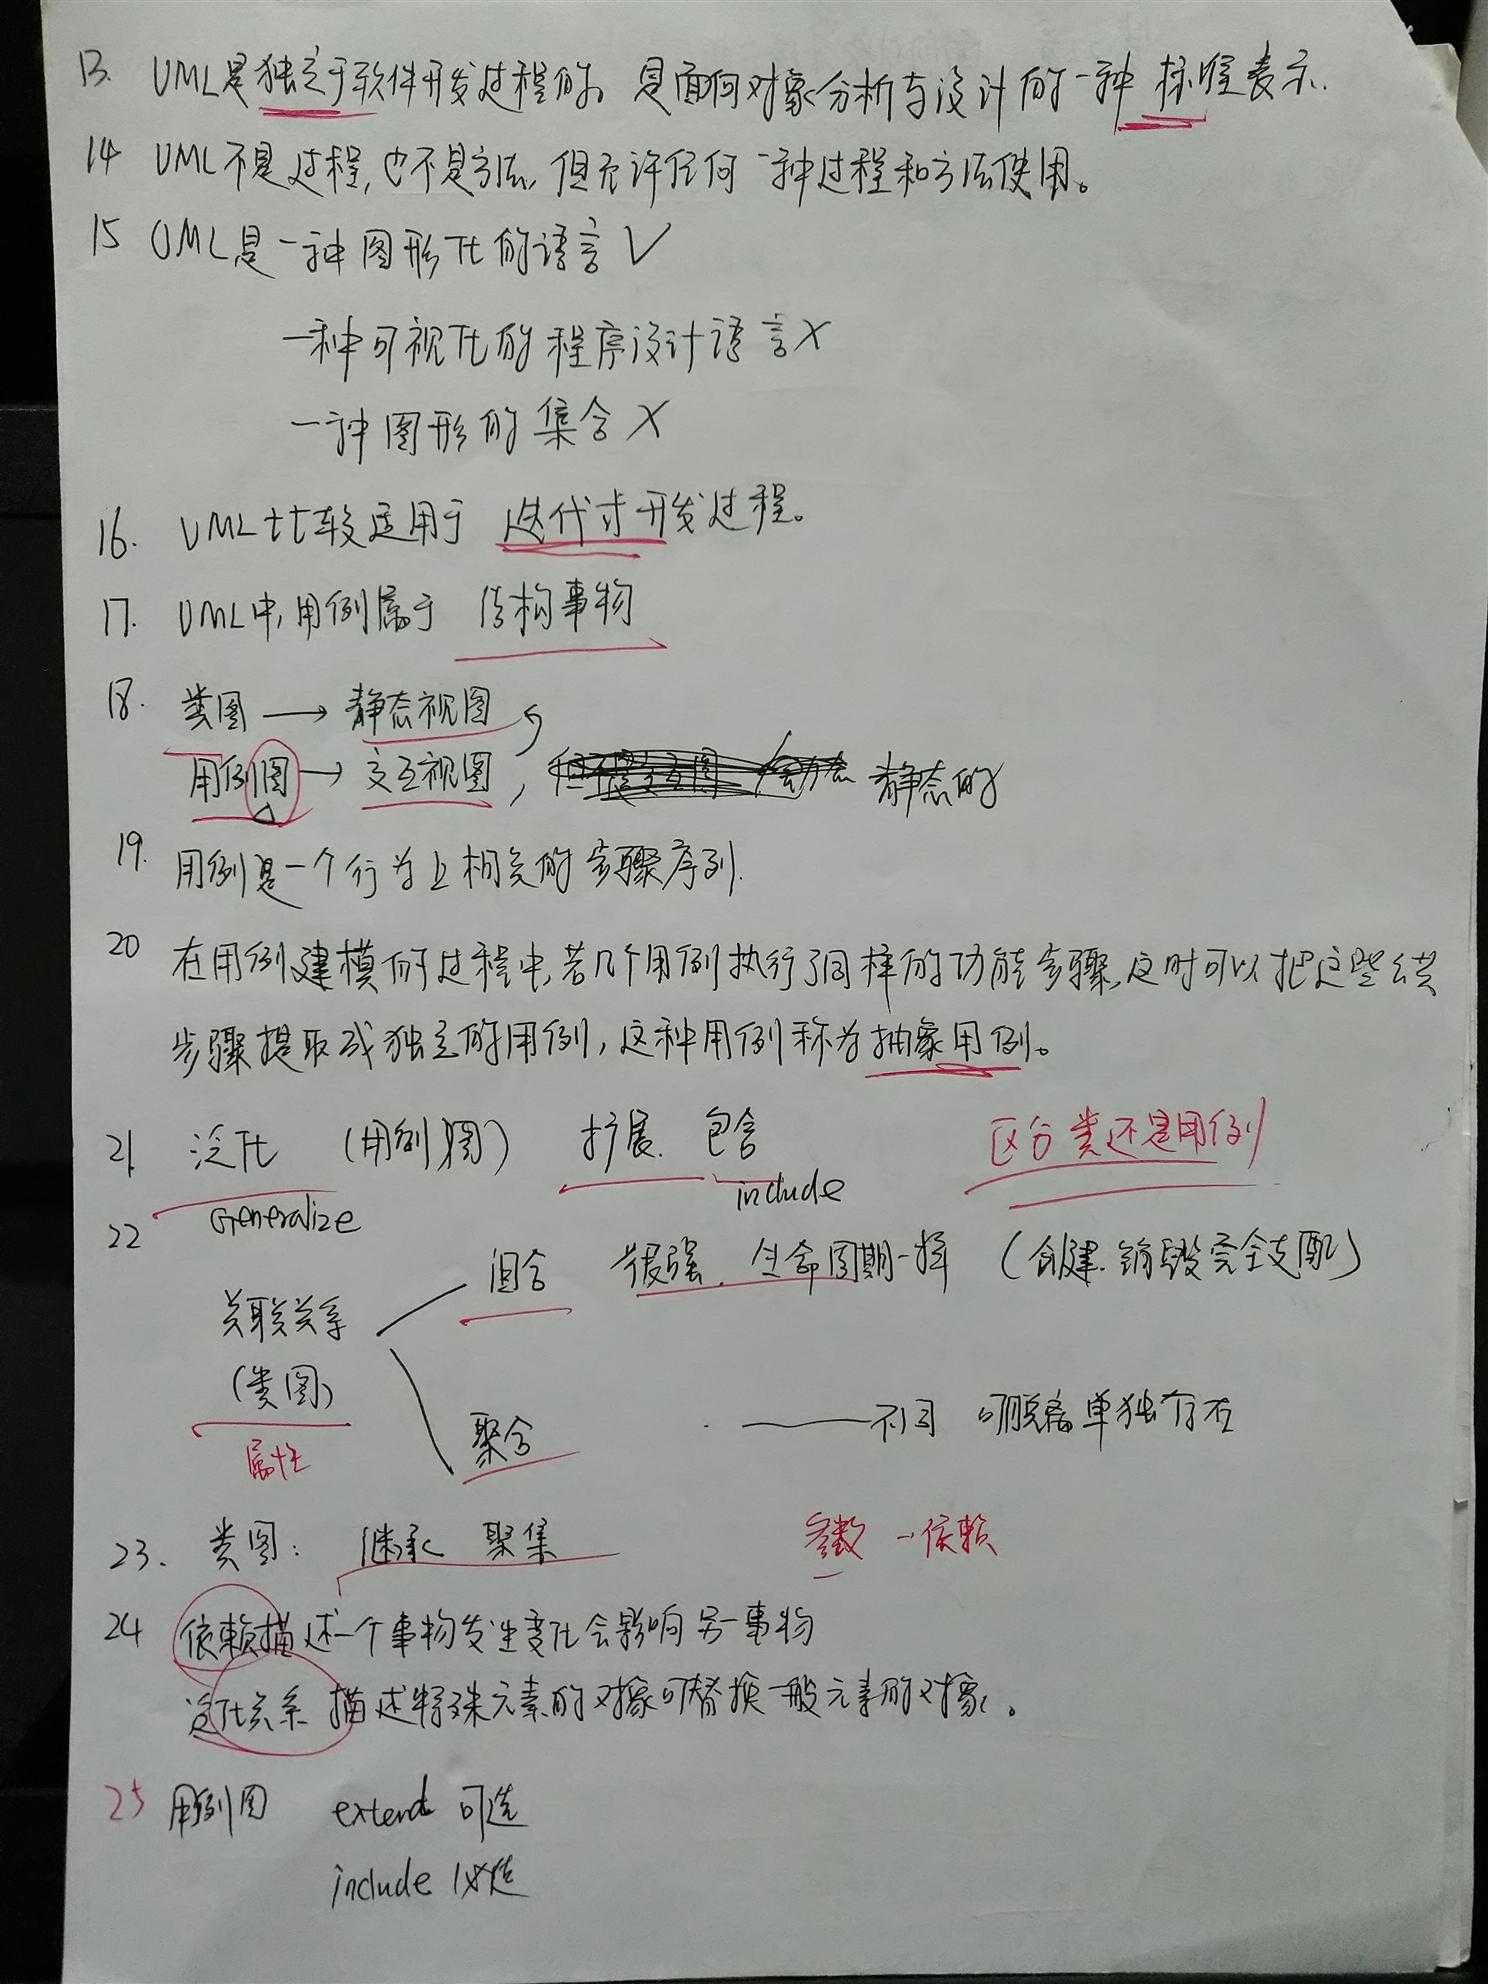 13. UML是独立于软件开发过程的。是面向对象分析与设计的一种 标准表示.
14 UML不是过程,也不是方法,但允许任何一种过程和方法使用。
15 UML是一种图形化的语言 √
一种可视化的程序设计语言 ×
一种图形的集合 ×
16. UML比较适用于 迭代式开发过程。
17. UML中,用例属于 结构事物
18. 类图 → 静态视图
用例图 → 交互视图, 静态的
19. 用例是一个行为上相关的步骤序列.
20 在用例建模的过程中,若几个用例执行了同样的功能步骤,这时可以把这些公共
步骤提取成独立的用例,这种用例称为抽象用例。
21 泛化 (用例图) 扩展. 包含 区分类还是用例
Generalize include
22 组合 很强. 生命周期一样 (创建.销毁完全支配)
关联关系
(类图)
聚合 不同 可脱离单独存在
属性
23. 类图: 继承 聚集 参数 - 依赖
24 依赖描述一个事物发生变化会影响另一事物
泛化关系 描述特殊元素的对象可替换一般元素的对象。
25 用例图 extend 可选
include 必选